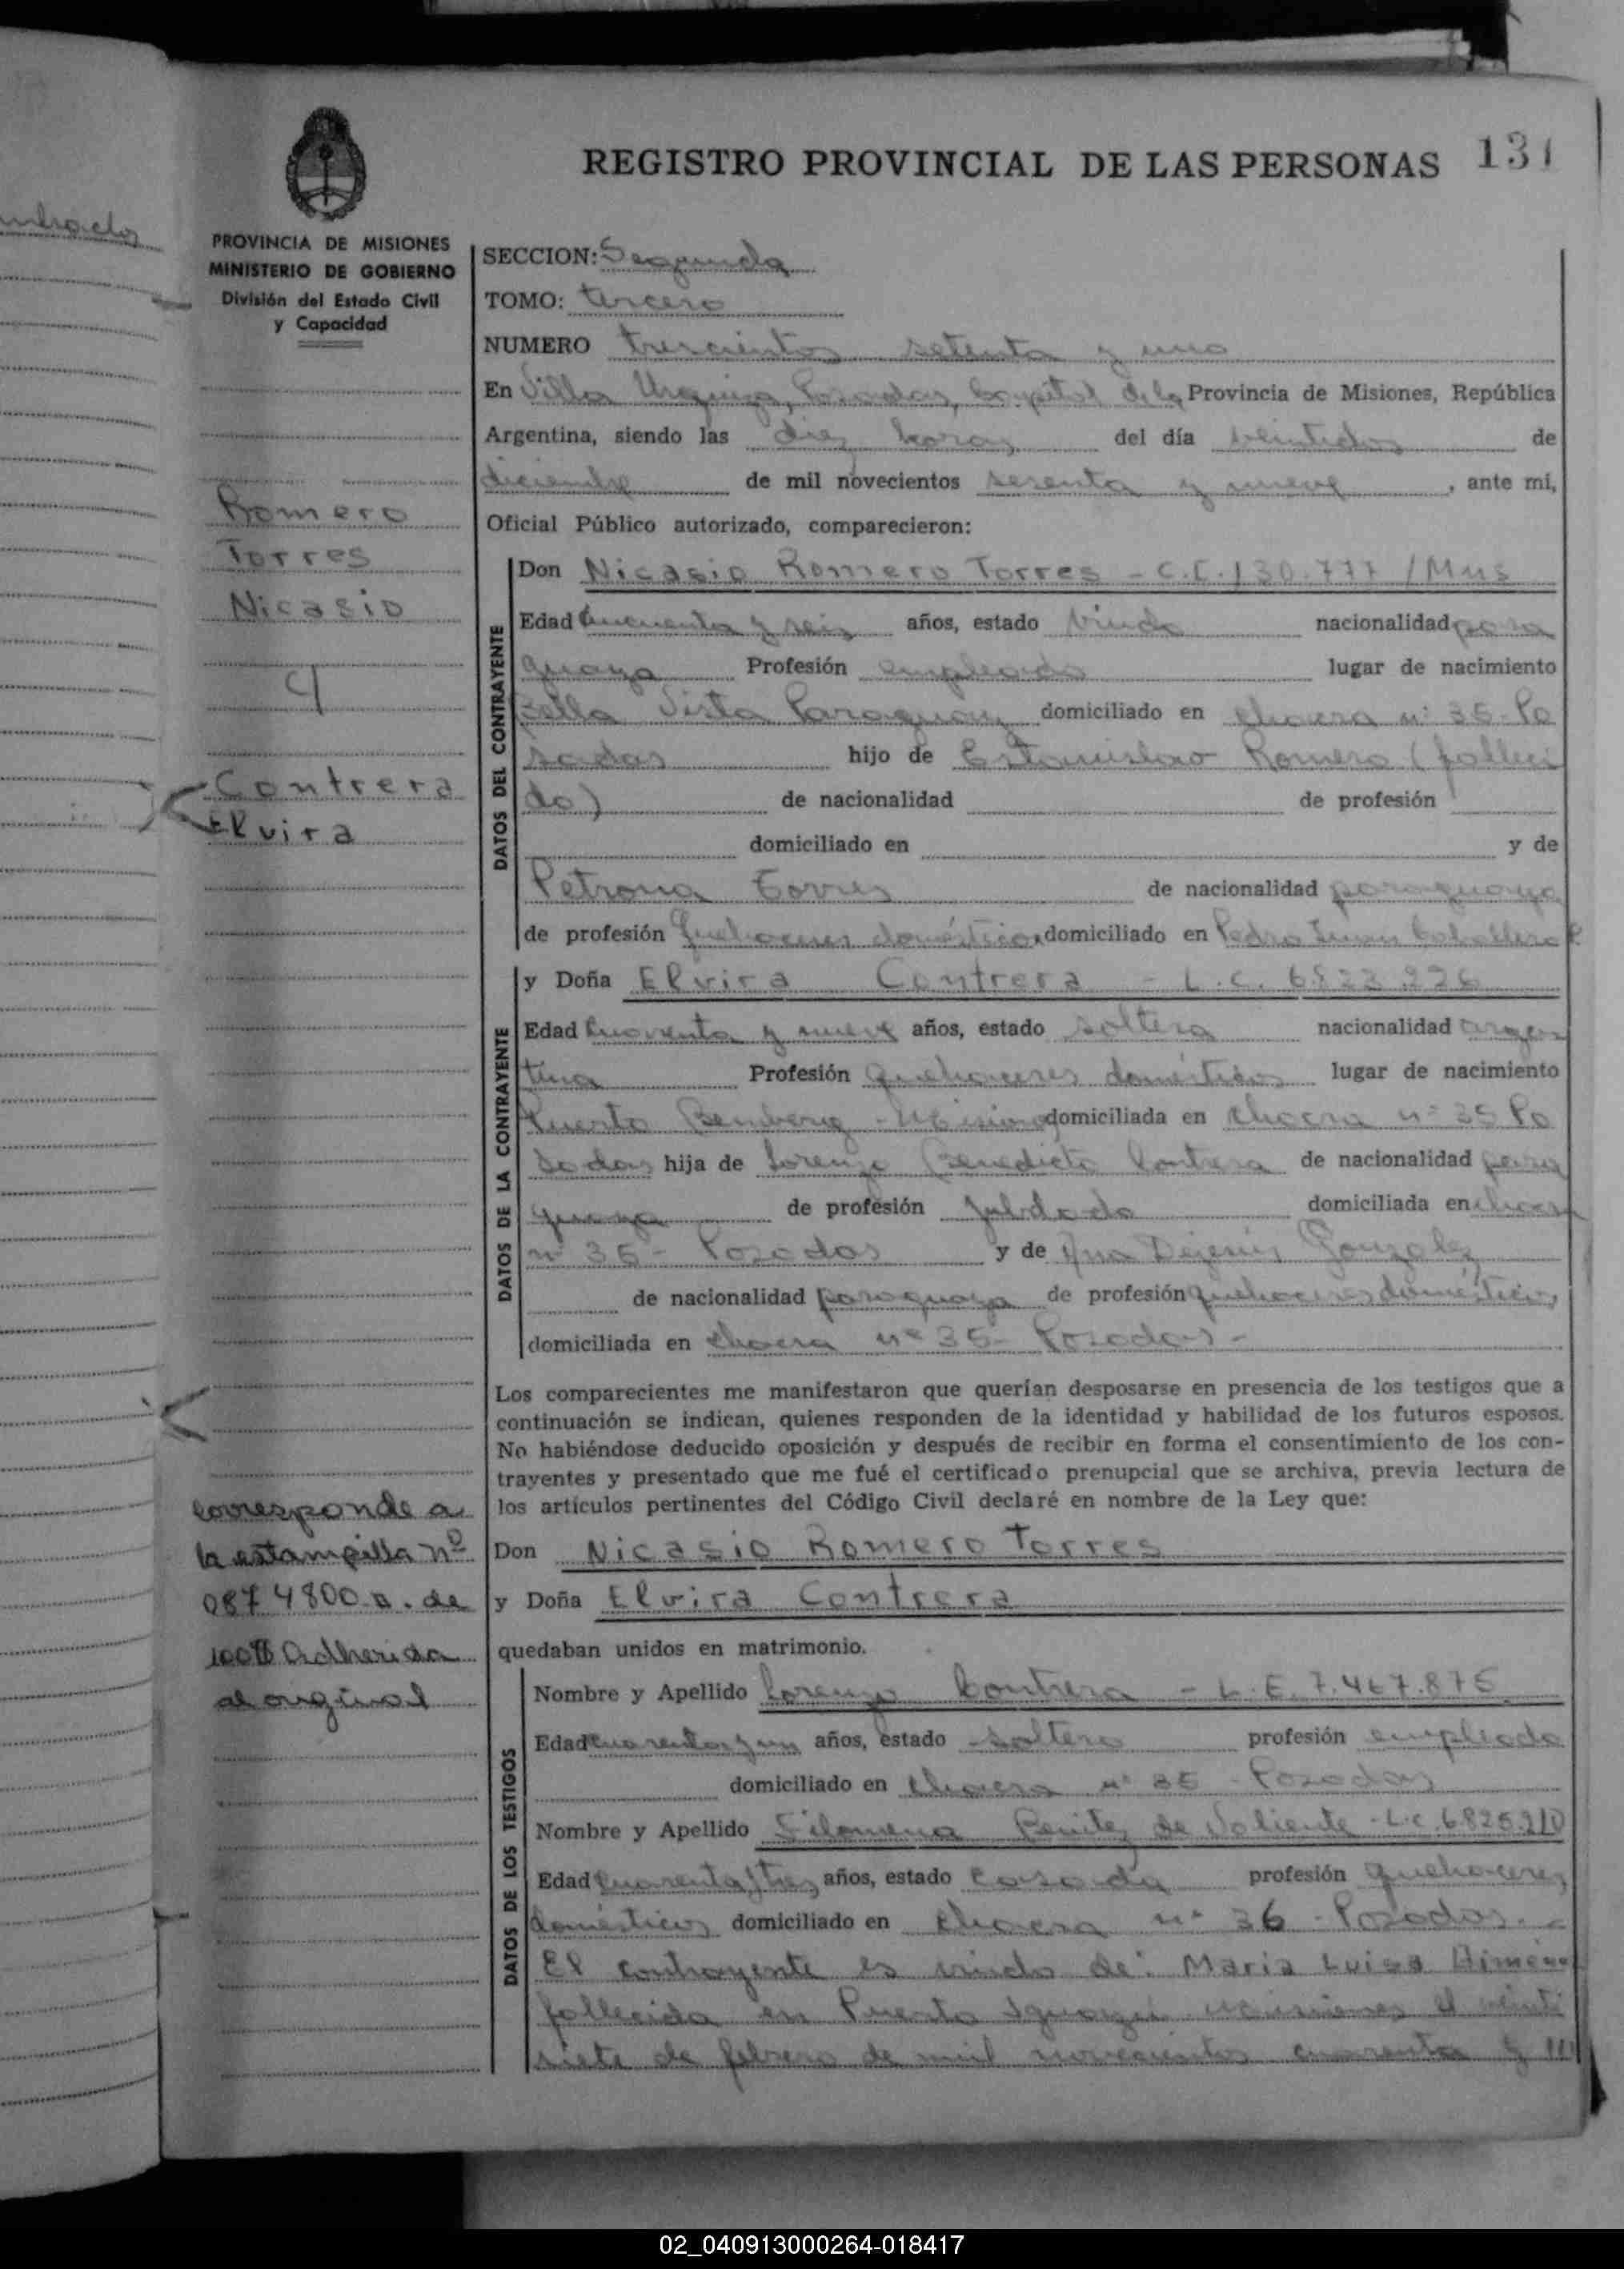 REGISTRO PROVINCIAL DE LAS PERSONAS 131
PROVINCIA DE MISIONES
MINISTERIO DE GOBIERNO
División del Estado Civil
y Capacidad
Romero
Torres
Nicasio
c/
Contrera
Elvira
corresponde a
la estampilla nº
0874800 a. de
100$ adherida
al original
SECCION: Segunda
TOMO: tercero
NUMERO trescientos setenta y uno
En Villa Urquiza, Posadas, Capital de la Provincia de Misiones, República
Argentina, siendo las diez horas del día veintidos de
diciembre de mil novecientos sesenta y nueve, ante mi,
Oficial Público autorizado, comparecieron:
DATOS DEL CONTRAYENTE
Don Nicasio Romero Torres - C.I. 130.777 / Mns
Edad Cincuenta y seis años, estado viudo nacionalidad para
guaya Profesión empleado lugar de nacimiento
Bella Vista Paraguay domiciliado en chacra nº 35 - Po
sadas hijo de Estanislao Romero (falleci
do) de nacionalidad de profesión
domiciliado en y de
Petrona Torres de nacionalidad paraguaya
de profesión Quehaceres domésticos domiciliado en Pedro Juan Caballero P
DATOS DE LA CONTRAYENTE
y Doña Elvira Contrera - L.C. 6.823.226
Edad Cuarenta y nueve años, estado soltera nacionalidad argen
tina Profesión Quehaceres domésticos lugar de nacimiento
Puerto Bemberg - Misiones domiciliada en chacra nº 35 Po
sadas hija de Lorenzo Benedicto Contrera de nacionalidad para
guaya de profesión Jubilado domiciliada en chacra
nº 35 - Posadas y de Ana Dejesús Gonzalez
de nacionalidad paraguaya de profesión quehaceres domésticos
domiciliada en chacra nº 35 - Posadas -
Los comparecientes me manifestaron que querían desposarse en presencia de los testigos que a
continuación se indican, quienes responden de la identidad y habilidad de los futuros esposos.
No habiéndose deducido oposición y después de recibir en forma el consentimiento de los con-
trayentes y presentado que me fué el certificado prenupcial que se archiva, previa lectura de
los artículos pertinentes del Código Civil declaré en nombre de la Ley que:
Don Nicasio Romero Torres
y Doña Elvira Contrera
quedaban unidos en matrimonio.
DATOS DE LOS TESTIGOS
Nombre y Apellido Lorenzo Contrera - L.E. 7.467.875
Edad cuarenta y un años, estado soltero profesión empleado
domiciliado en chacra nº 35 - Posadas
Nombre y Apellido Filomena Benitez de Valiente - L.C. 6.825.210
Edad Cuarenta y tres años, estado casada profesión quehaceres
domésticos domiciliado en chacra nº 36 - Posadas. -
El contrayente es viudo de: Maria Luisa
fallecida en Puerto Iguazú Misiones el veinti
siete de febrero de mil novecientos cuarenta y
02_040913000264-018417